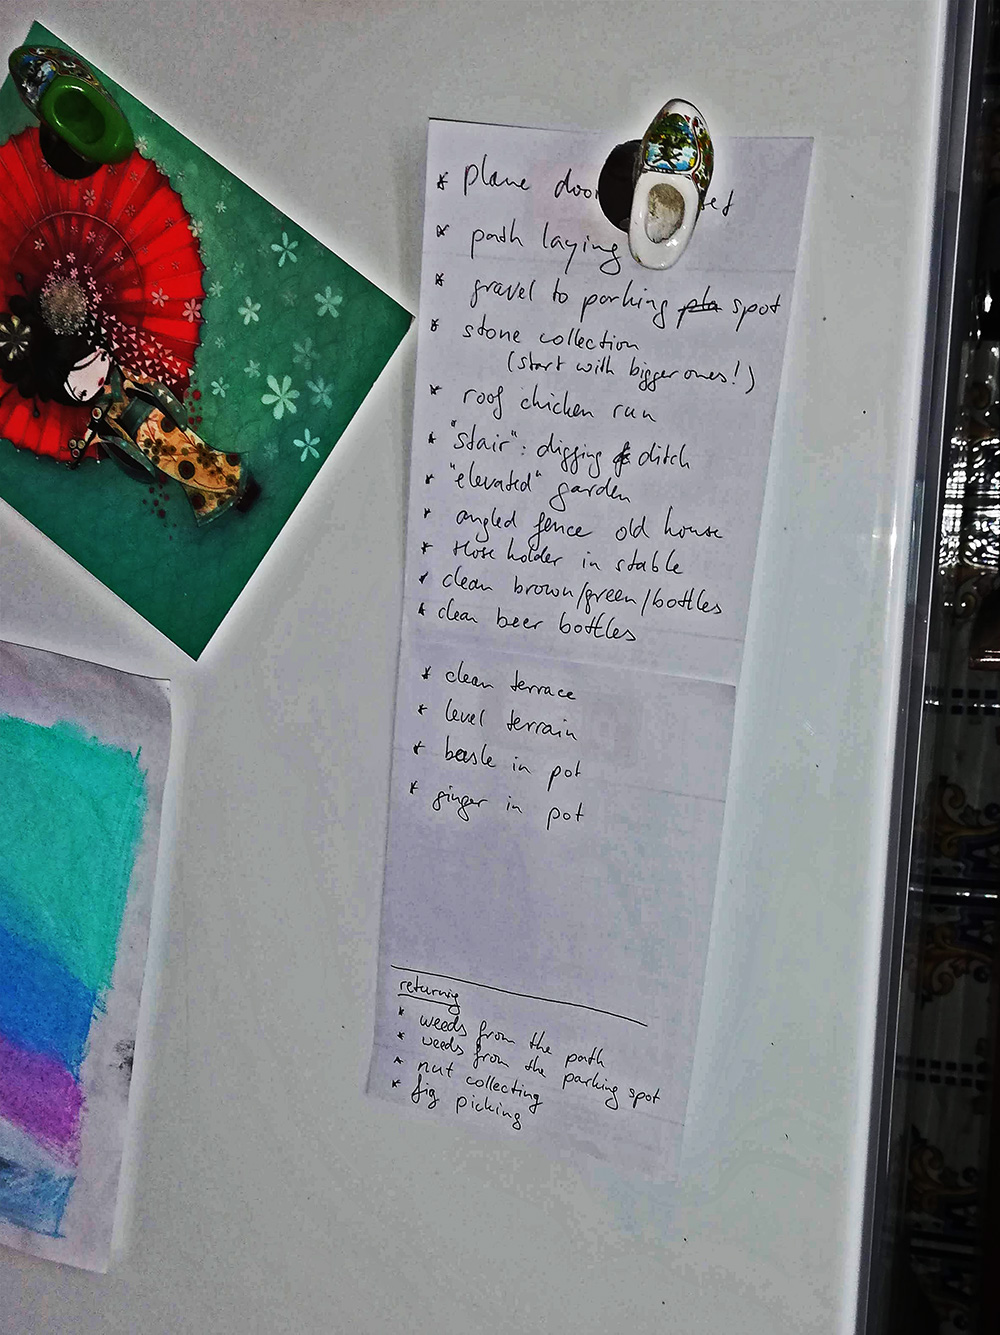 * plane door
* path laying
* gravel to parking spot
* stone collection
(start with bigger ones!)
* roof chicken run
* "stair": digging ditch
* "elevated" garden
* angled fence old house
* Hose holder in stable
* clean brown/green/bottles
* clean beer bottles
* clean terrace
* level terrain
* in pot
* ginger in pot
returnig
* weeds from the path
* weeds from the parking spot
* nut collecting
* fig picking